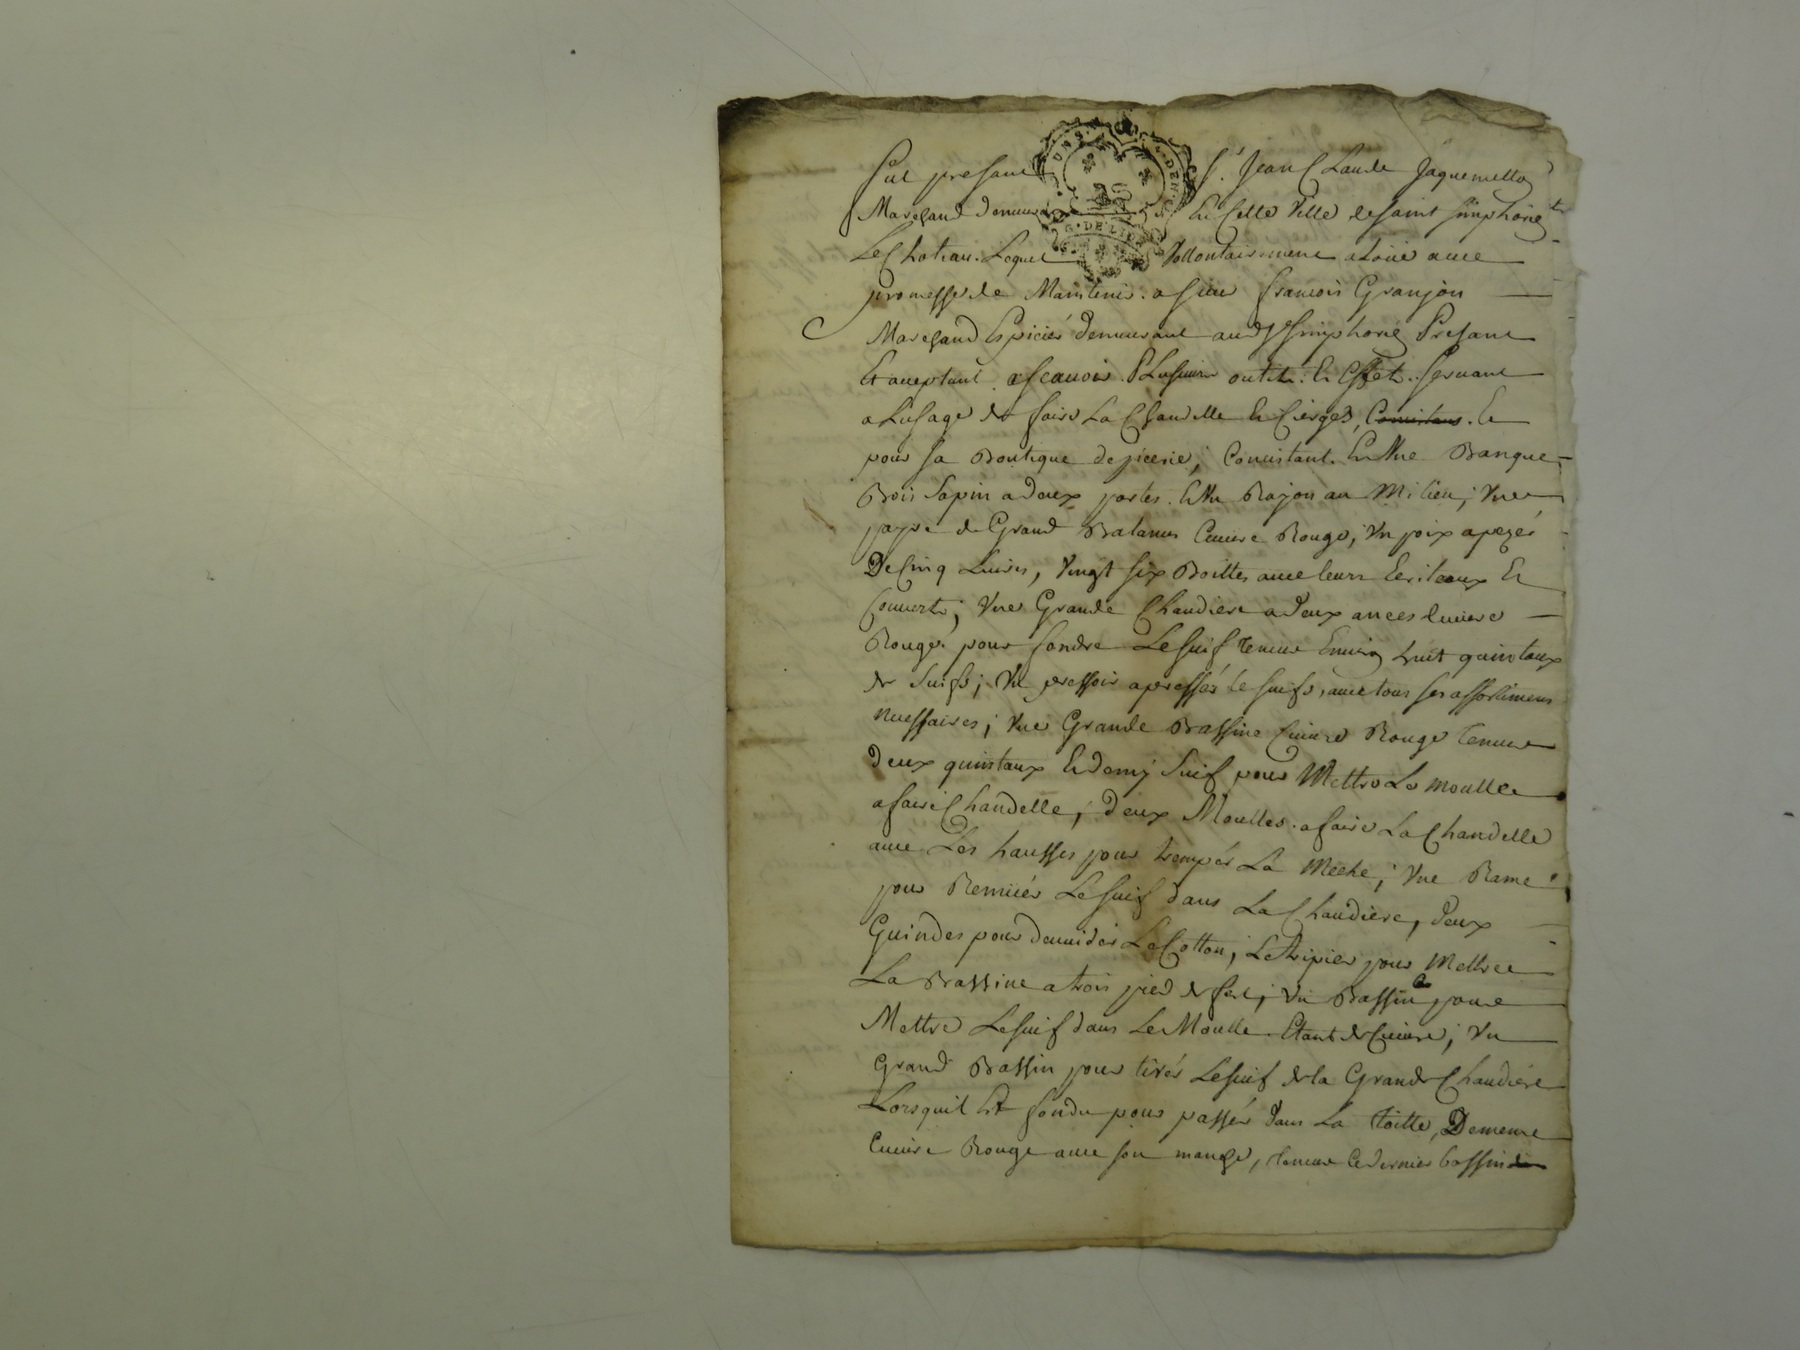 fut presant Sr. Jean Claude Jaquemetton
Marchand demeurant En Cette Ville de saint simphorien
Le Chateau. Lequel Vollontairement a Loüé avec
promesse de Maintenir. a sieur francois Granjon
Marchand Epiciér demeurant aud st simphorien Presant
Et aceptant. ascavoir. Plusieurs outils. Et Effets. servant
a Lusage de faire La Chandelle Et Cierges, Consistans. Et
pour sa Boutique depicerie; Consistant. En Une Banque
Bois Sapin a deux portes. Et Un Rayon au Milieu; Une
payre de Grand Balances Cuivre Rouge, Un poix a pezér
De Cinq Livres, Vingt six Boittes avec leurs Ecriteaux Et
Couverts; Une Grande Chaudiere a deux ances Cuivre
Rouge. pour fondre Le suif tenüe Environ huit quintaux
de suifs; Un pressoir a pressér le suifs, avec tous ses assortimens
necessaires; Une Grande Bassine Cuivre Rouge tenue
deux quintaux Et demy Suif pour Mettre Le moulle
a faire Chandelle; deux Moulles. a faire La Chandelle
avec Les hausses pour trempér La Meche; Une Rame
pour Remuér Le suif dans La Chaudiere, deux
Guindes pour devuidér Le Cotton; Le tripier pour Mettre
La Brassine a trois pied de fer; Un Bassin pour
Mettre Le suif dans Le Moulle Etant de Cuivre; Un
Grand Bassin pour tirér Le suif de la Grande Chaudiére
Lorsquil Est fondu pour passér dans La toille, De meme
Cuivre Rouge avec son manche, tenue Ce dernier bassin
G. DE LION